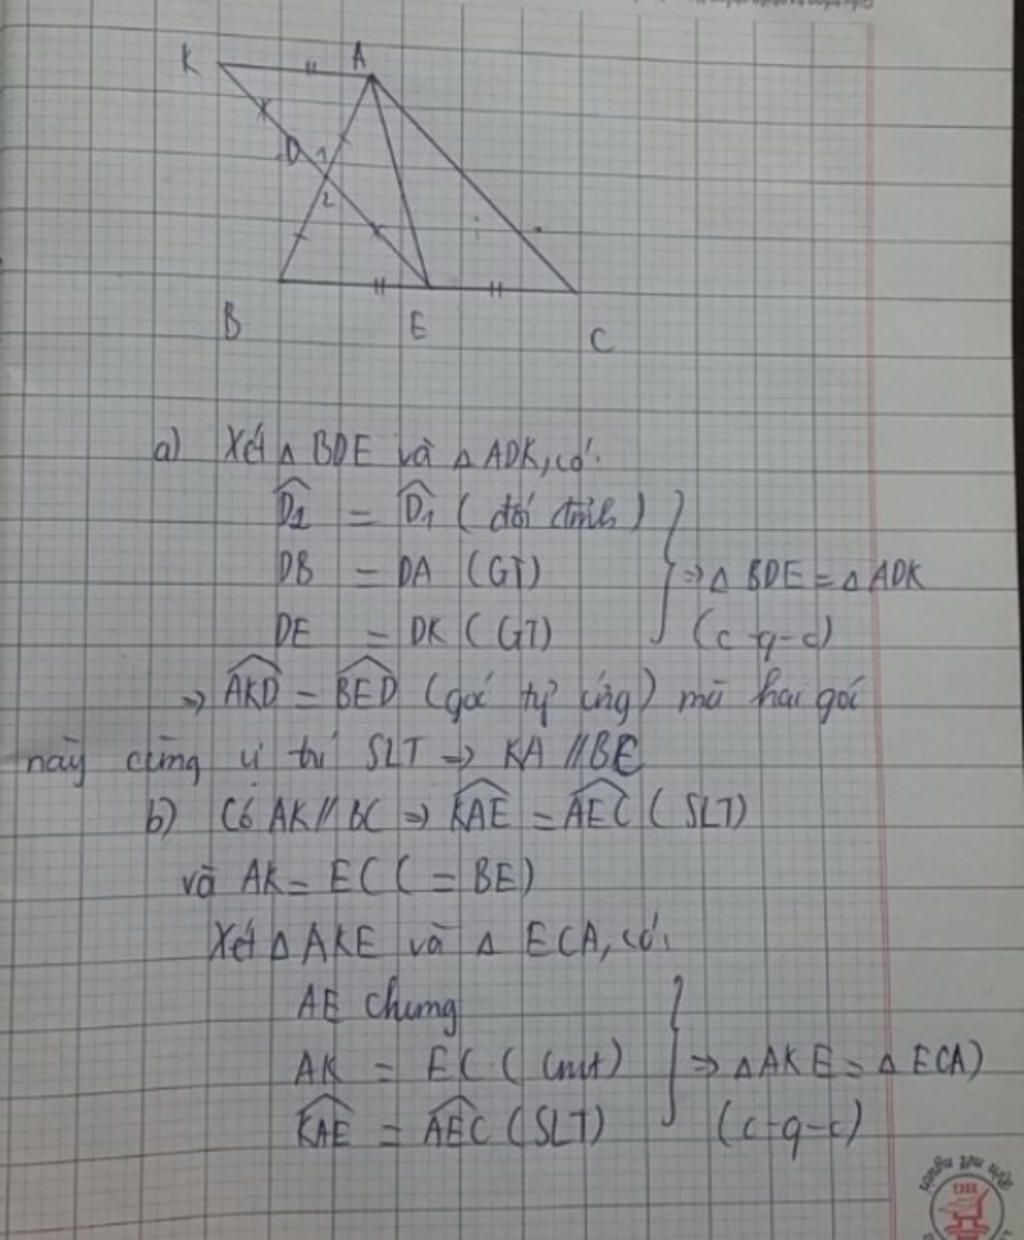 K A
D 1
2
B E C
a) Xét △ BDE và △ ADK, có:
D̂2 = D̂1 (đối đỉnh)
DB = DA (GT) ⇒ △ BDE = △ ADK
DE = DK (GT) (c-g-c)
⇒ AKD = BED (góc tỷ ứng) mà hai góc
này cùng vị trí SLT ⇒ KA // BE
b) Có AK // BC ⇒ KAE = AEC (SLT)
và AK = EC (= BE)
Xét △ AKE và △ ECA, có:
AE chung
AK = EC (cmt) ⇒ △ AKE = △ ECA)
KAE = AEC (SLT) (c-g-c)